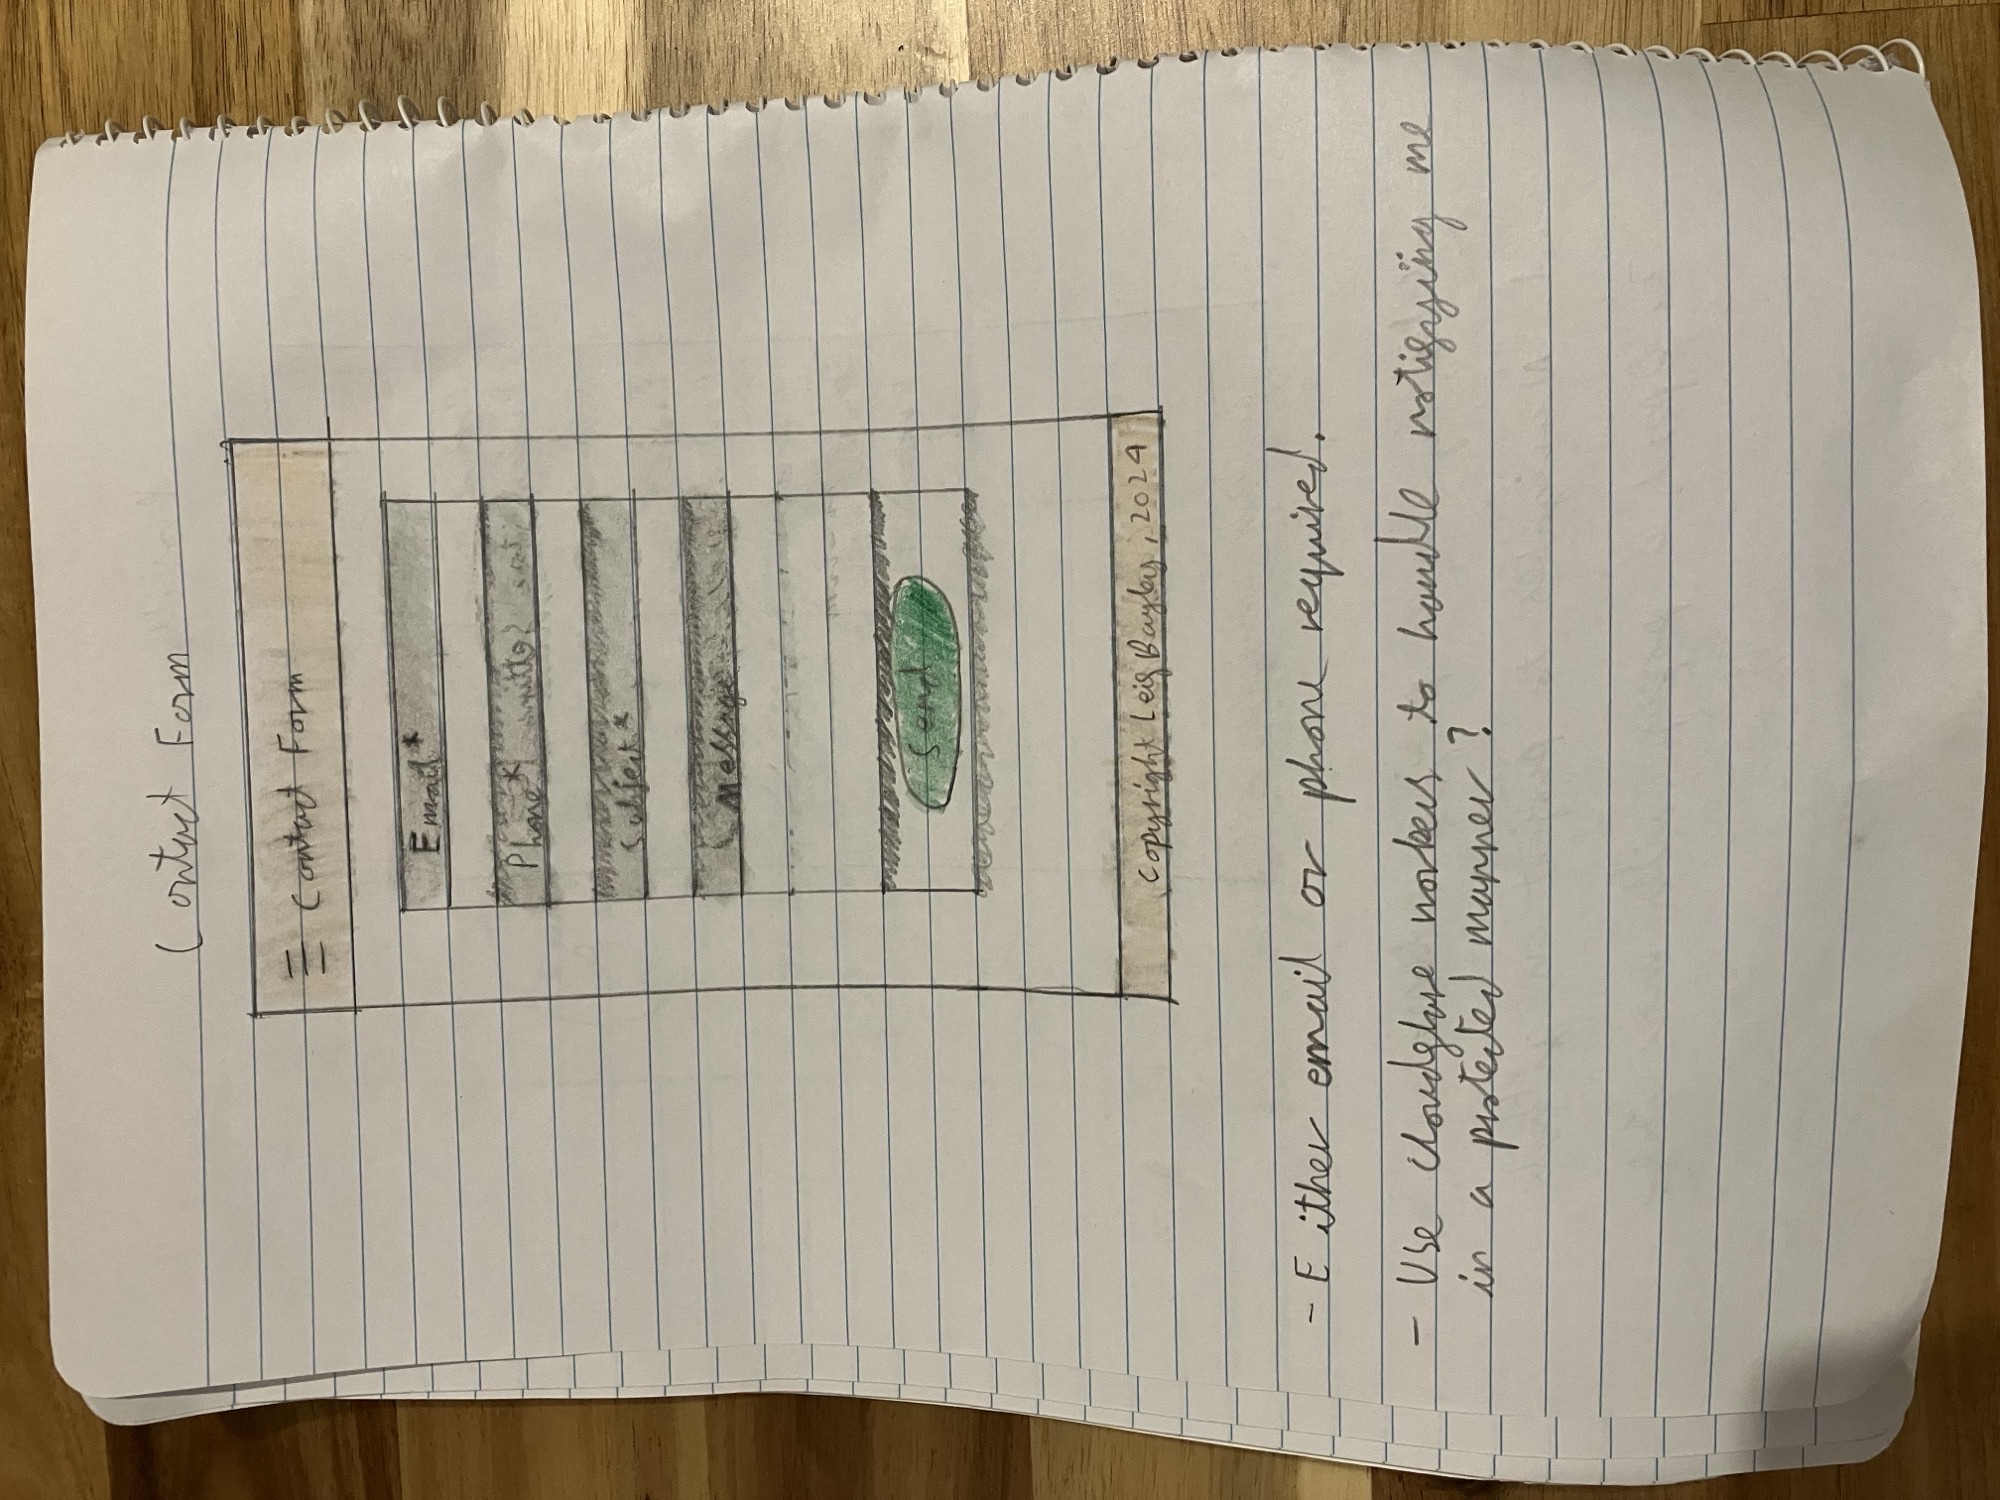 Contact Form
☰ Contact Form
Email*
Phone*
Subject*
Message
Send
Copyright Leig Bayby, 2024
- Either email or phone required.
- Use cloudflare workers to handle notifying me
in a protected manner?